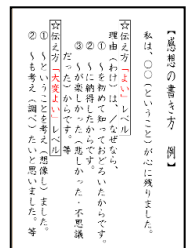 【感想の書き方　例】
私は、○○(ということ)が心に残りました。
☆伝え方「よい」レベル
理由(わけ)は、/なぜなら、
①　～を初めて知っておどろいたからです。
②　～に納得したからです。
③　～が楽しかった(悲しかった・不思議
だった)からです。等
☆伝え方「大変よい」レベル
①　～ということを考え(想像し)ました。
②　～も考え(調べ)たいと思いました。等